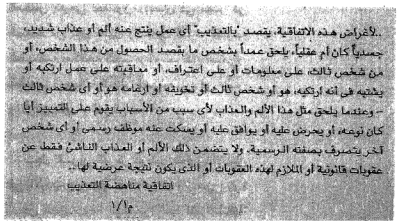 ..لأغراض هذه الاتفاقية، يقصد "بالتعذيب" أى عمل ينتج عنه ألم أو عذاب شديد،
جسدياً كان أم عقلياً، يلحق عمداً بشخص ما بقصد الحصول من هذا الشخص، أو
من شخص ثالث، على معلومات أو على اعتراف، أو معاقبته على عمل ارتكبه أو
يشتبه فى أنه ارتكبه، هو أو شخص ثالث أو تخويفه أو ارغامه هو أو أى شخص ثالث
- وعندما يلحق مثل هذا الألم والعذاب لأى سبب من الأسباب يقوم على التمييز أيا
كان نوعه، أو يحرض عليه أو يوافق عليه أو يسكت عنه موظف رسمى أو أى شخص
آخر يتصرف بصفته الرسمية. ولا يتضمن ذلك الألم أو العذاب الناشئ فقط عن
عقوبات قانونية أو الملازم لهذه العقوبات أو الذى يكون نتيجة عرضية لها..
اتفاقية مناهضة التعذيب
م١/١